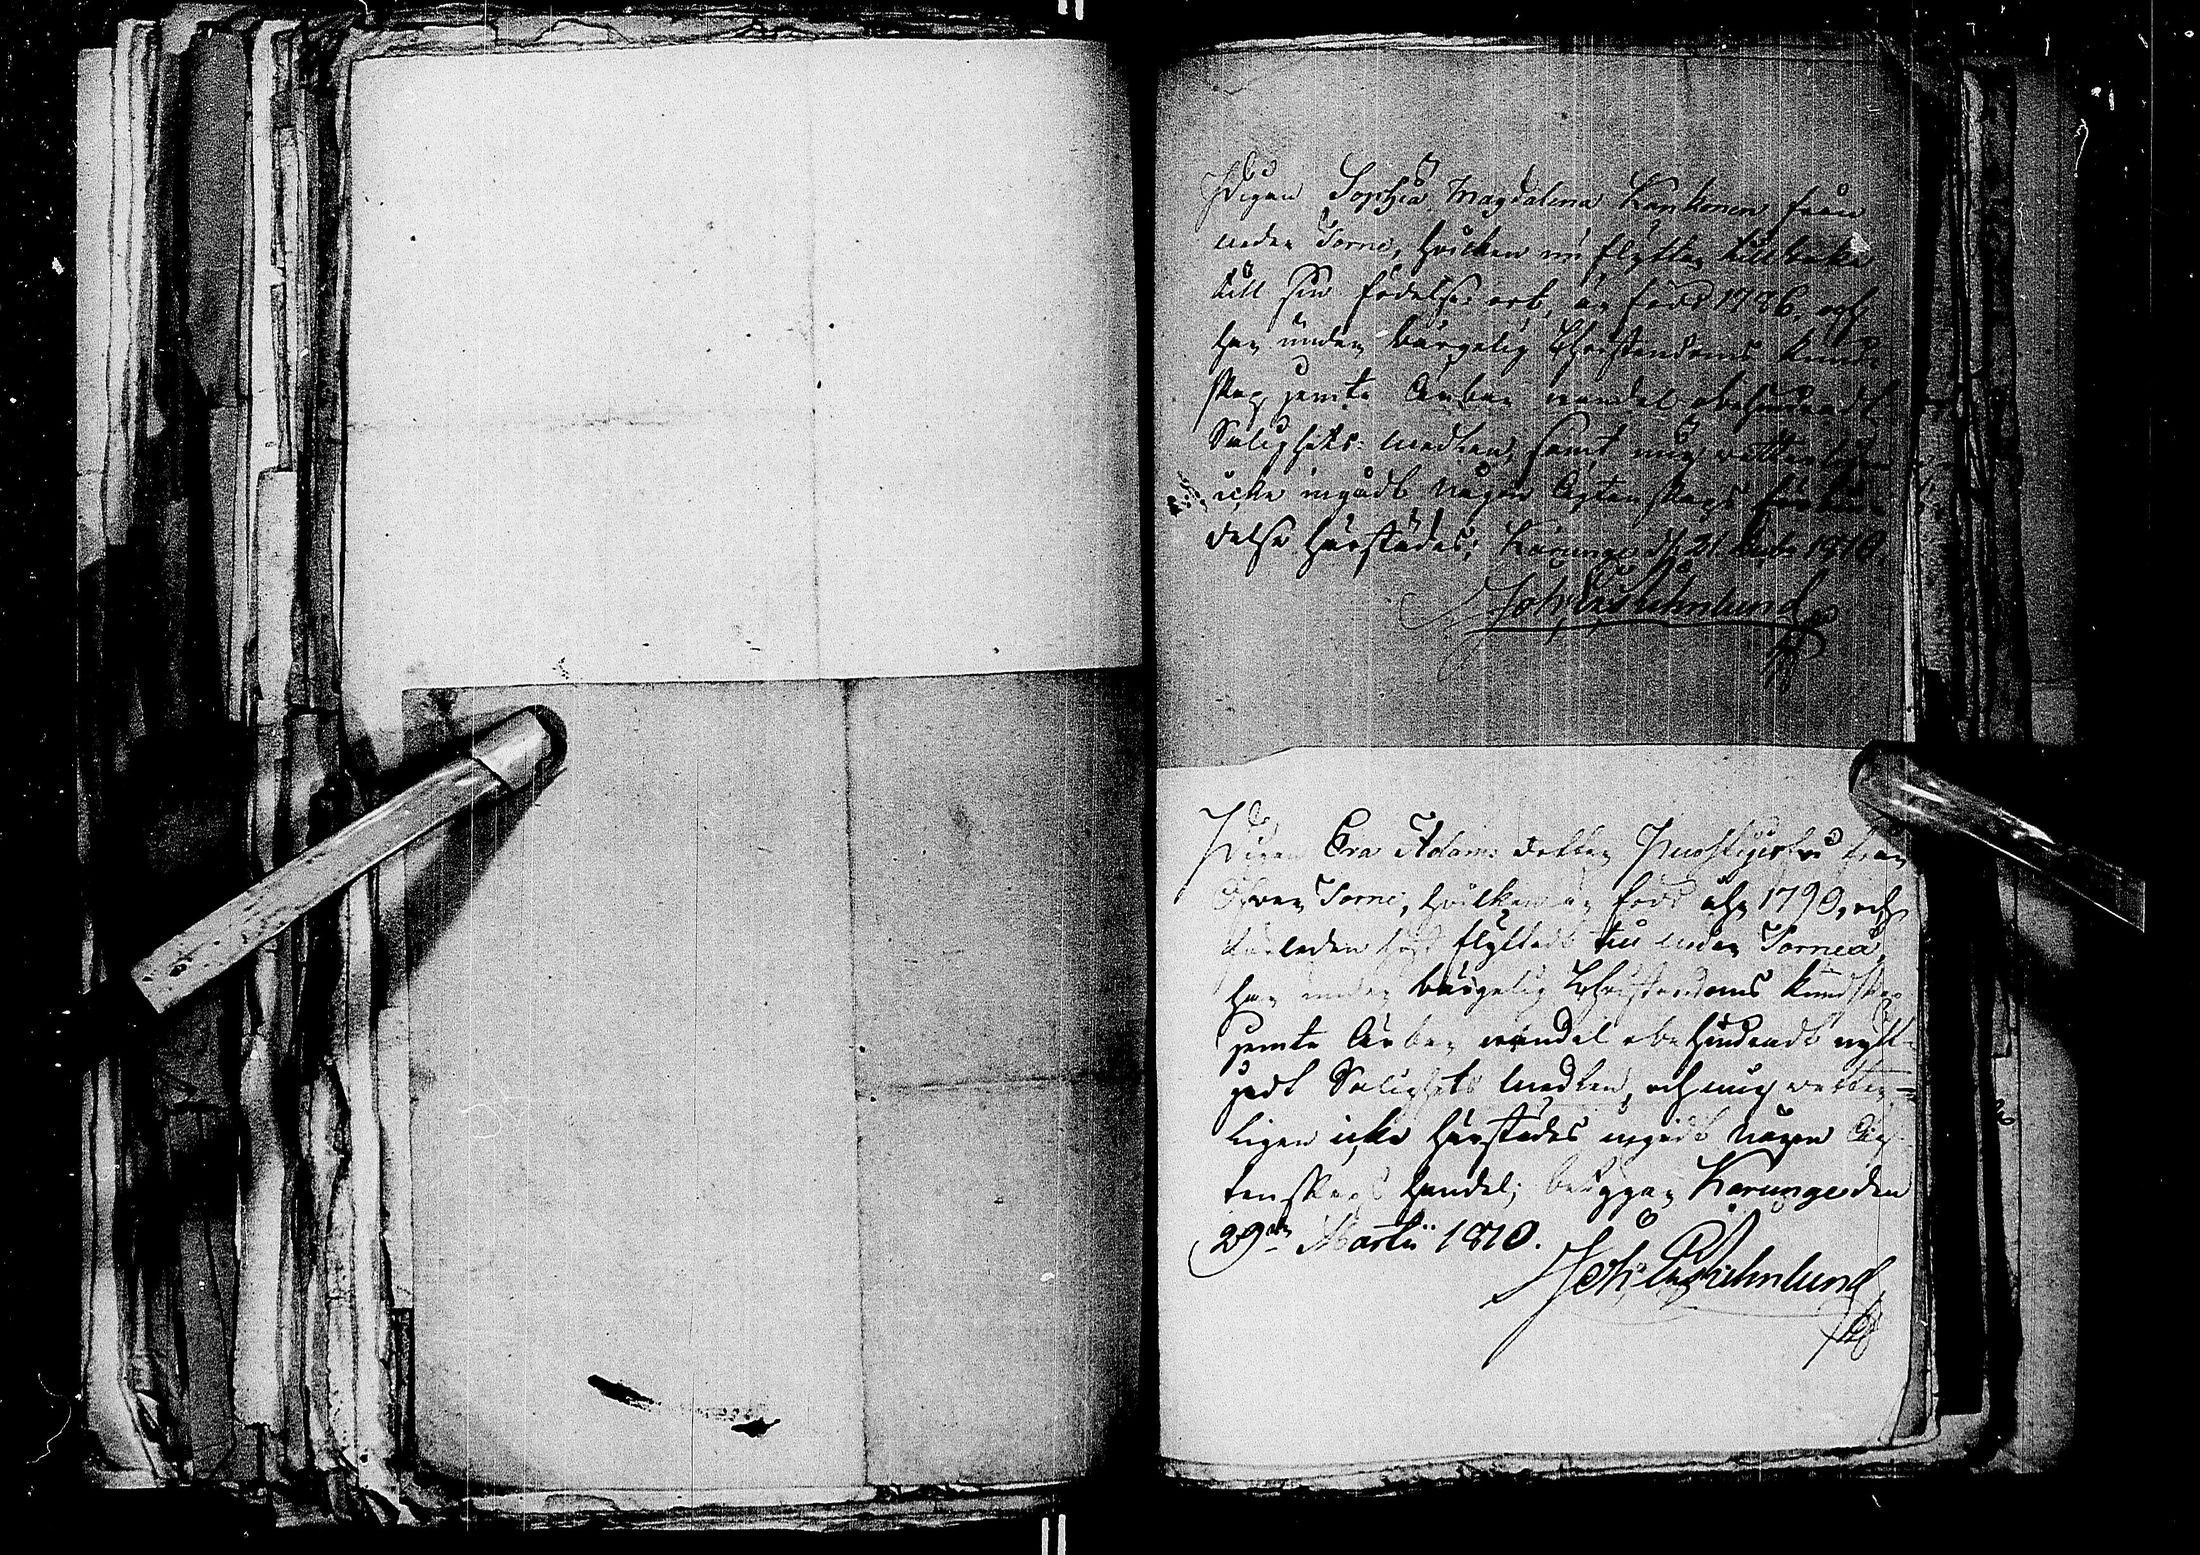 Pigan Sophia Magdalena Kankonen från
neder Torne, hvilken nu flyttar tillbaka
till sin födelse ort, är född 1786, och
har under bärgelig Christendoms kund-
skap jemte ärbar wandel obehindradt
Salighets medlen, samt mig vetterligen
icke ingådt någon Ägtenskaps förbin-
delse härstädes; Karunge d. 21 1810.
Joh:
Pigan Eva Adams dotter från
Öfver Torne, hvilken är född åhr 1790, och
förleden höst flyttadt till neder Torneå,
har under bärgelig Christendoms kundskap
jemte ärbar wandel obehindradt nytt-
jadt Salighets medlen, och mig vetter-
ligen icke härstädes ingådt någon Äg-
tenskaps handel; betygar Karunge den
29de Martii 1810.
Joh: